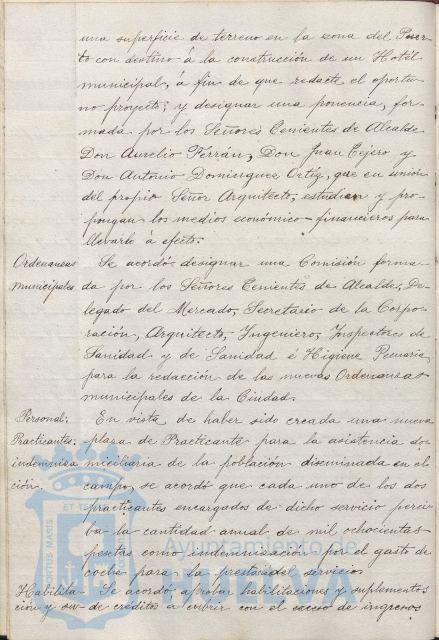 una superficie de terreno en la zona del Puer-
to con destino á la construcción de un Hotel
municipal, á fin de que redacte el oportu-
no proyecto; y designar una ponencia, for-
mada por los Señores Tenientes de Alcalde
Don Aurelio Ferrán, Don Juan Tejero y
Don Antonio Dominguez Ortiz, que en unión
del propio Señor Arquitecto, estudien y pro-
pongan los medios económico-financieros para
llevarlo á efecto.
Ordenanzas Se acordó designar una Comisión forma-
municipales da por los Señores Tenientes de Alcalde, De-
legado del Mercado, Secretario de la Corpo-
ración, Arquitecto, Ingeniero, Inspectores de
Sanidad y de Sanidad é Higiene Pecuaria,
para la redacción de las nuevas Ordenanzas
municipales de la Ciudad.
Personal: En vista de haber sido creada una nueva
Practicantes: plaza de Practicante para la asistencia do-
indemniza miciliaria de la población diseminada en el
ción. campo, se acordó que cada uno de los dos
practicantes encargados de dicho servicio perci-
ba la cantidad anual de mil ochocientas
pesetas como indemnización por el gasto de
coche para la prestación del servicio.
Habilita- Se acordó aprobar habilitaciones y suplementos
cion y su- de créditos a cubrir con el exceso de ingresos
Ayuntamiento de